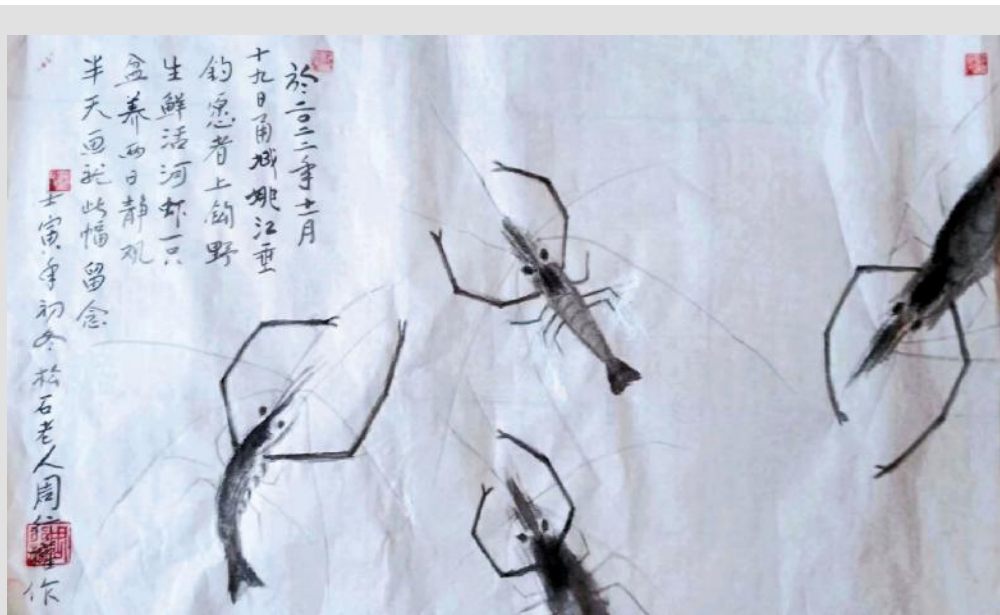 於二〇二二年十一月
十九日甬城姚江垂
钓愿者上钩野
生鲜活河虾一只
盆养两日静观
半天画此幅留念
壬寅年初冬松石老人周作